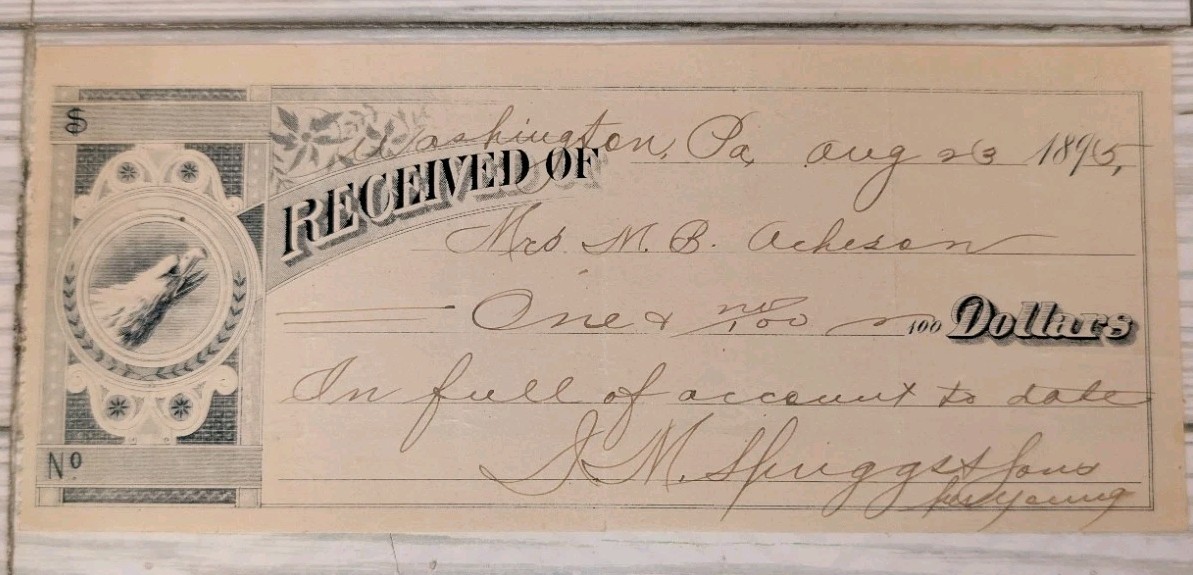 $
Washington, Pa, Aug 23 1895,
RECEIVED OF
Mrs. M. B. Acheson
One & no/100 100 Dollars
In full of account to date
No
M. Spriggs & Sons
Young